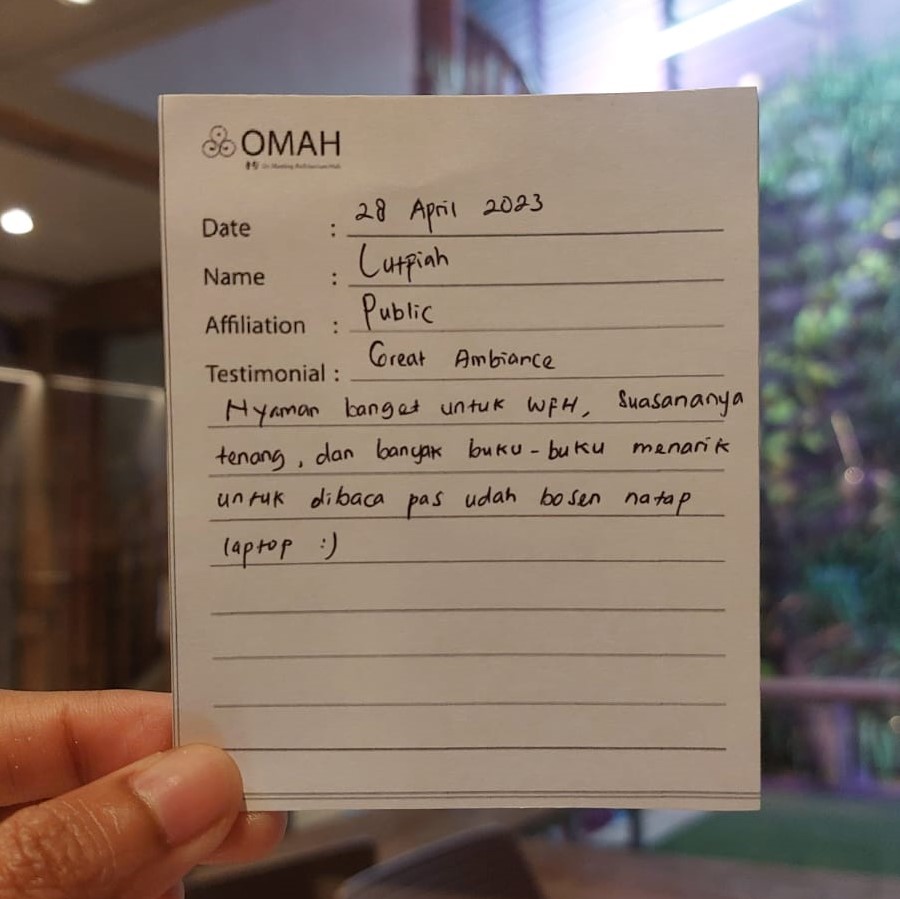 OMAH
Date : 28 April 2023
Name : Lutpiah
Affiliation : Public
Testimonial : Great Ambiance
Nyaman banget untuk WFH, Suasananya
tenang, dan banyak buku-buku menarik
untuk dibaca pas udah bosen natap
laptop :)